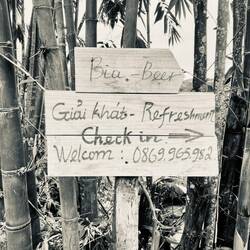 Bia - Beer
Giải khát - Refreshment
Check in
Welcom : 0869.965.982